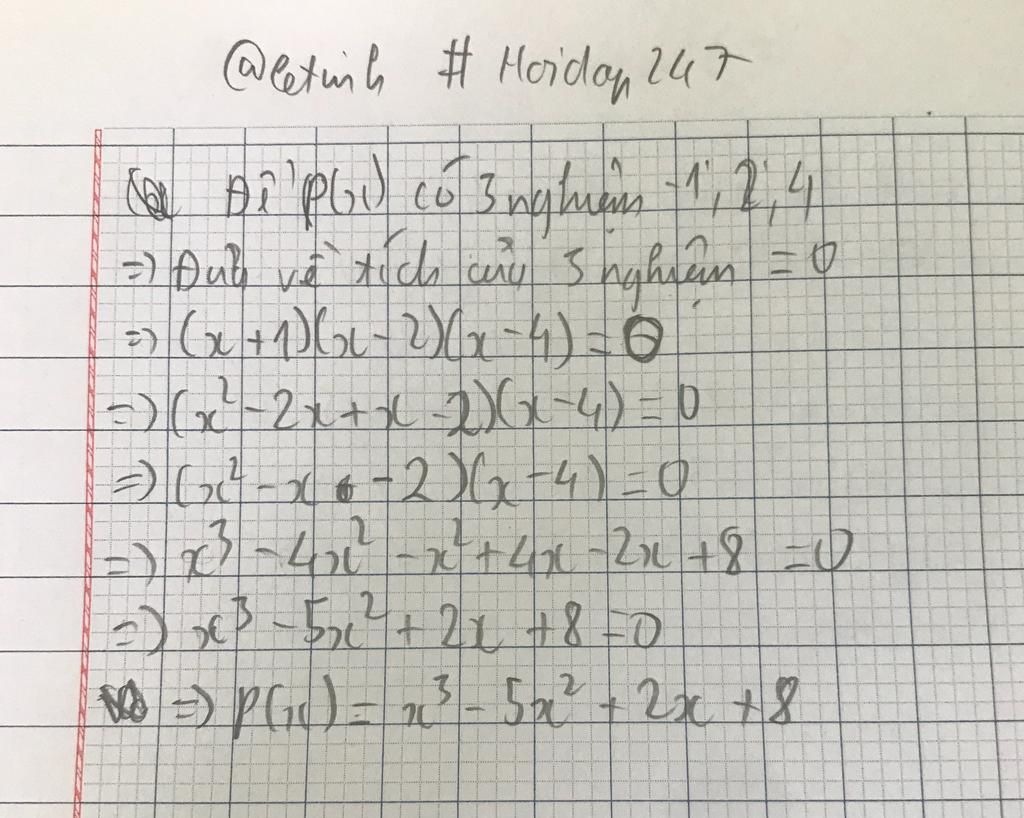 @letinh # Hoidap247
Để P(x) có 3 nghiệm -1, 2, 4
=> Đưa về tích của 3 nghiệm = 0
=> (x+1)(x-2)(x-4) = 0
=> (x² - 2x + x - 2)(x-4) = 0
=> (x² - x - 2)(x-4) = 0
=> x³ - 4x² - x² + 4x - 2x + 8 = 0
=> x³ - 5x² + 2x + 8 = 0
=> P(x) = x³ - 5x² + 2x + 8